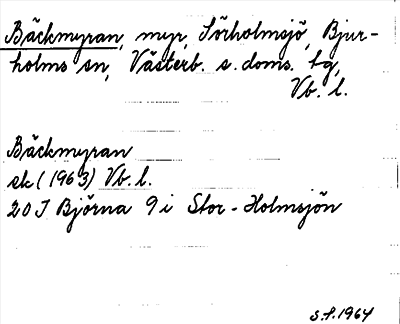 Bäckmyran, myr, Sörholmsjö, Bjur-
holms sn, Västerb. s. doms. tg,
Vb. l.
Bäckmyran
ek (1963) Vb. l.
20 J Björna 9 i Stor-Holmsjön
S.F. 1964